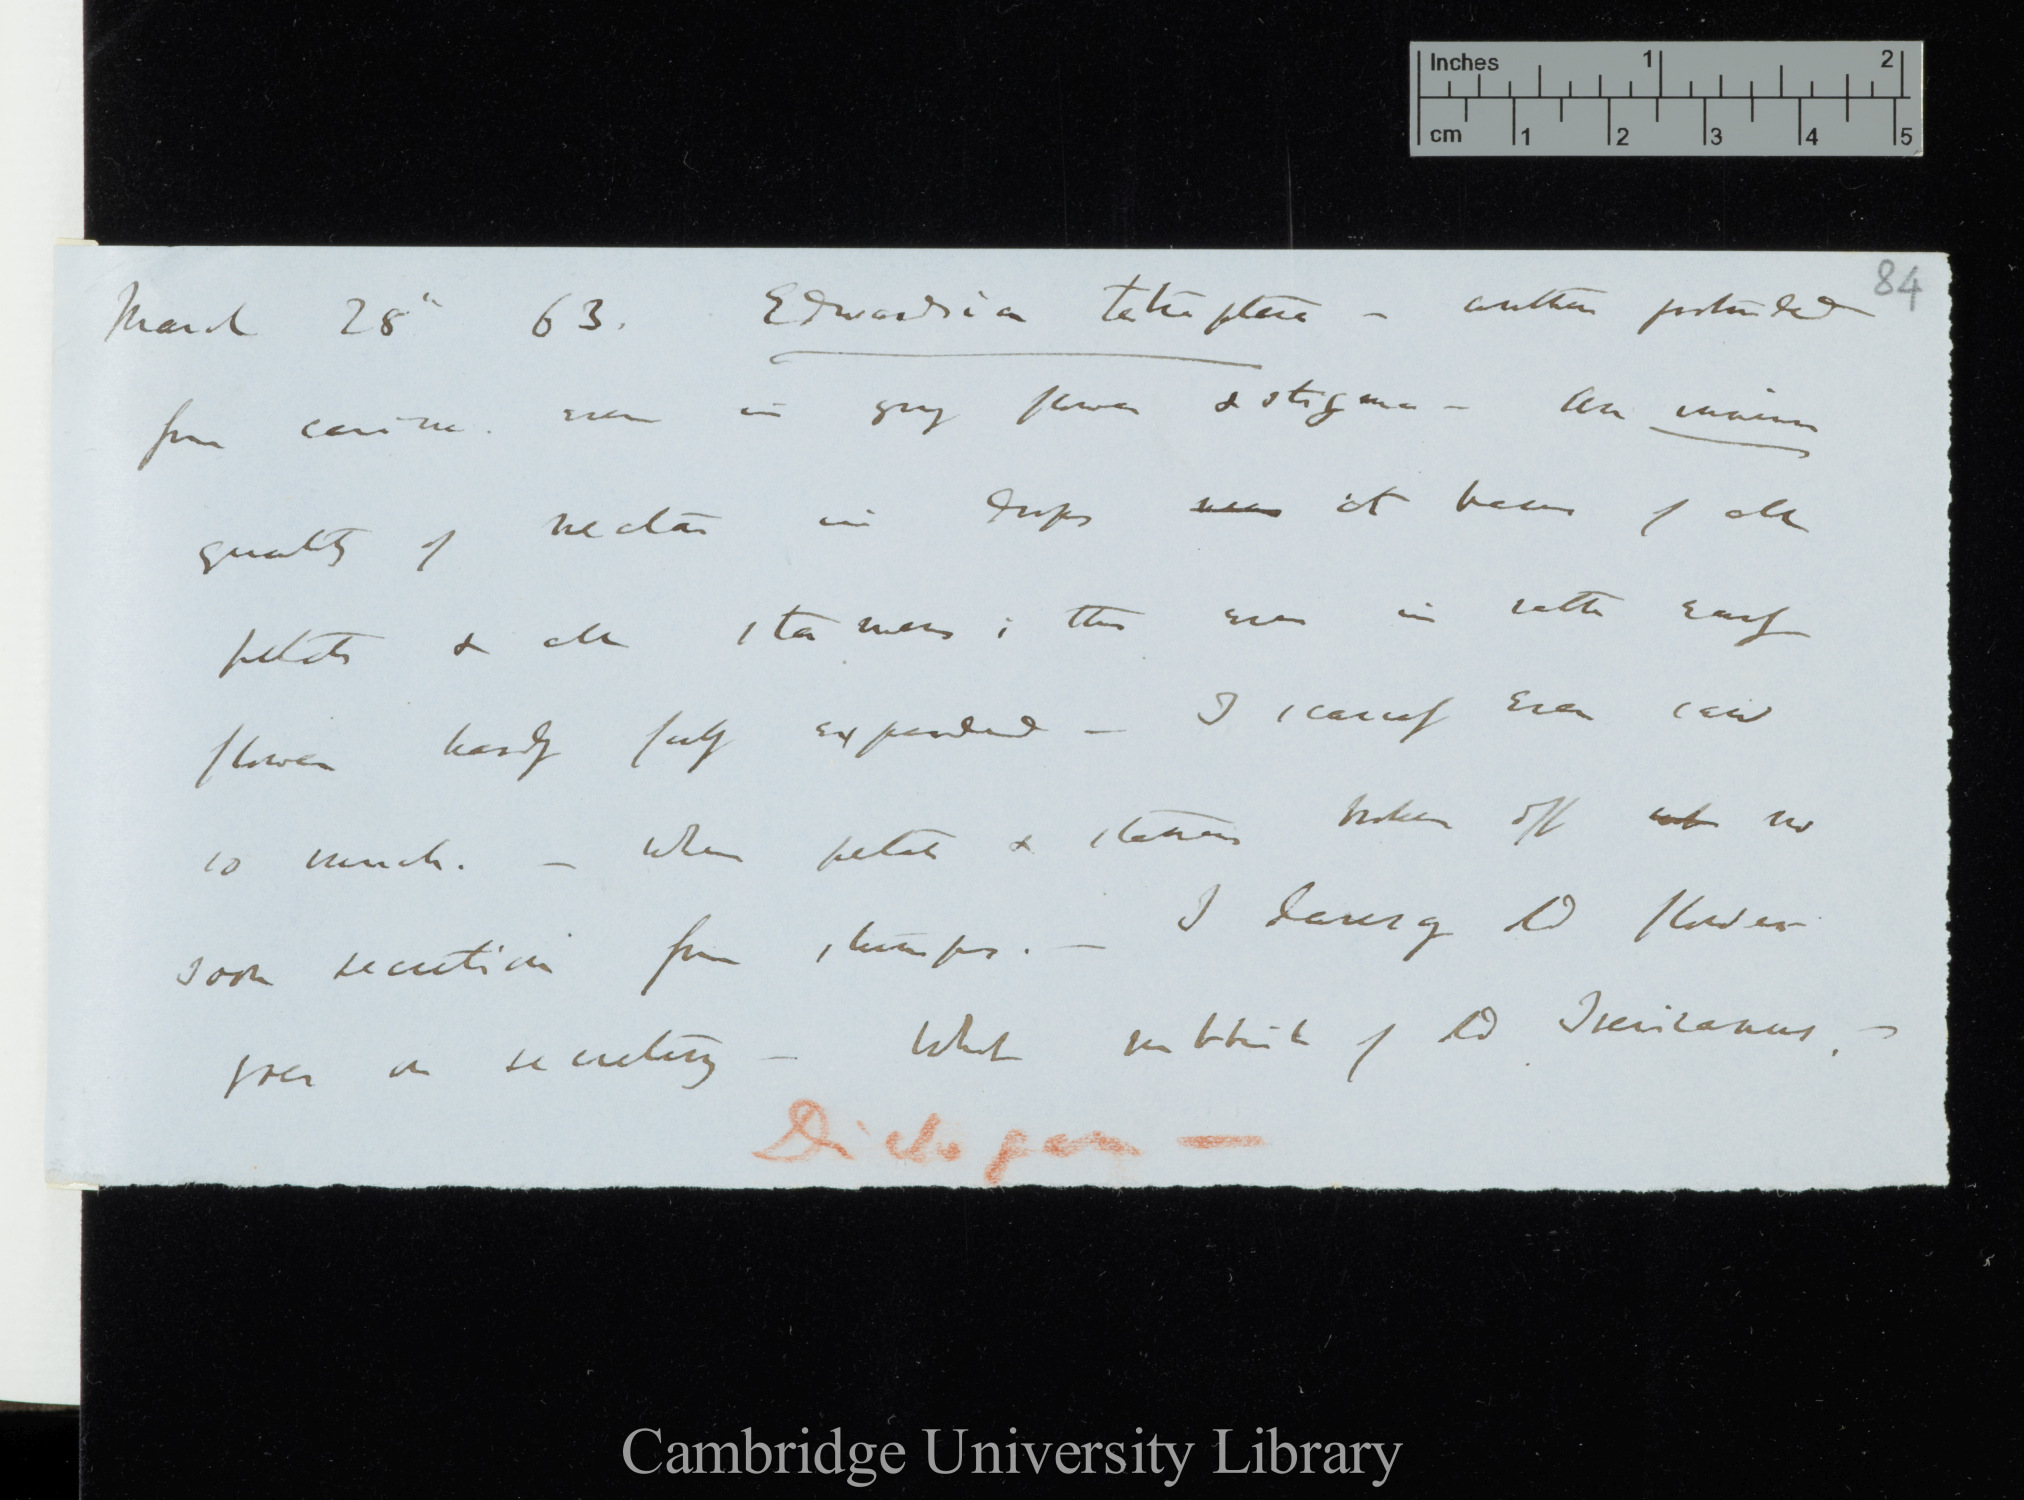 Inches 1 2
cm 1 2 3 4 5
84
March 28th 63. Edwardsia tetraptera - anthers protruded
from carina. even in young flower & stigma - An
quantity of nectar in drops at bases of all
petals & all stamens; this even in rather early
flower hardly fully expanded - I scarcely ever saw
so much. - When petals & stamens broken off no
soon secretion from stumps. - I daresay old flower
goes on secreting - What of old -
Dichogam -
Cambridge University Library